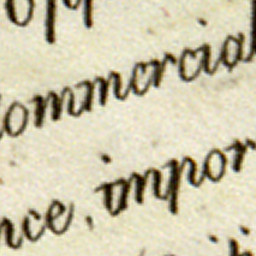 ommercial
nce, impor